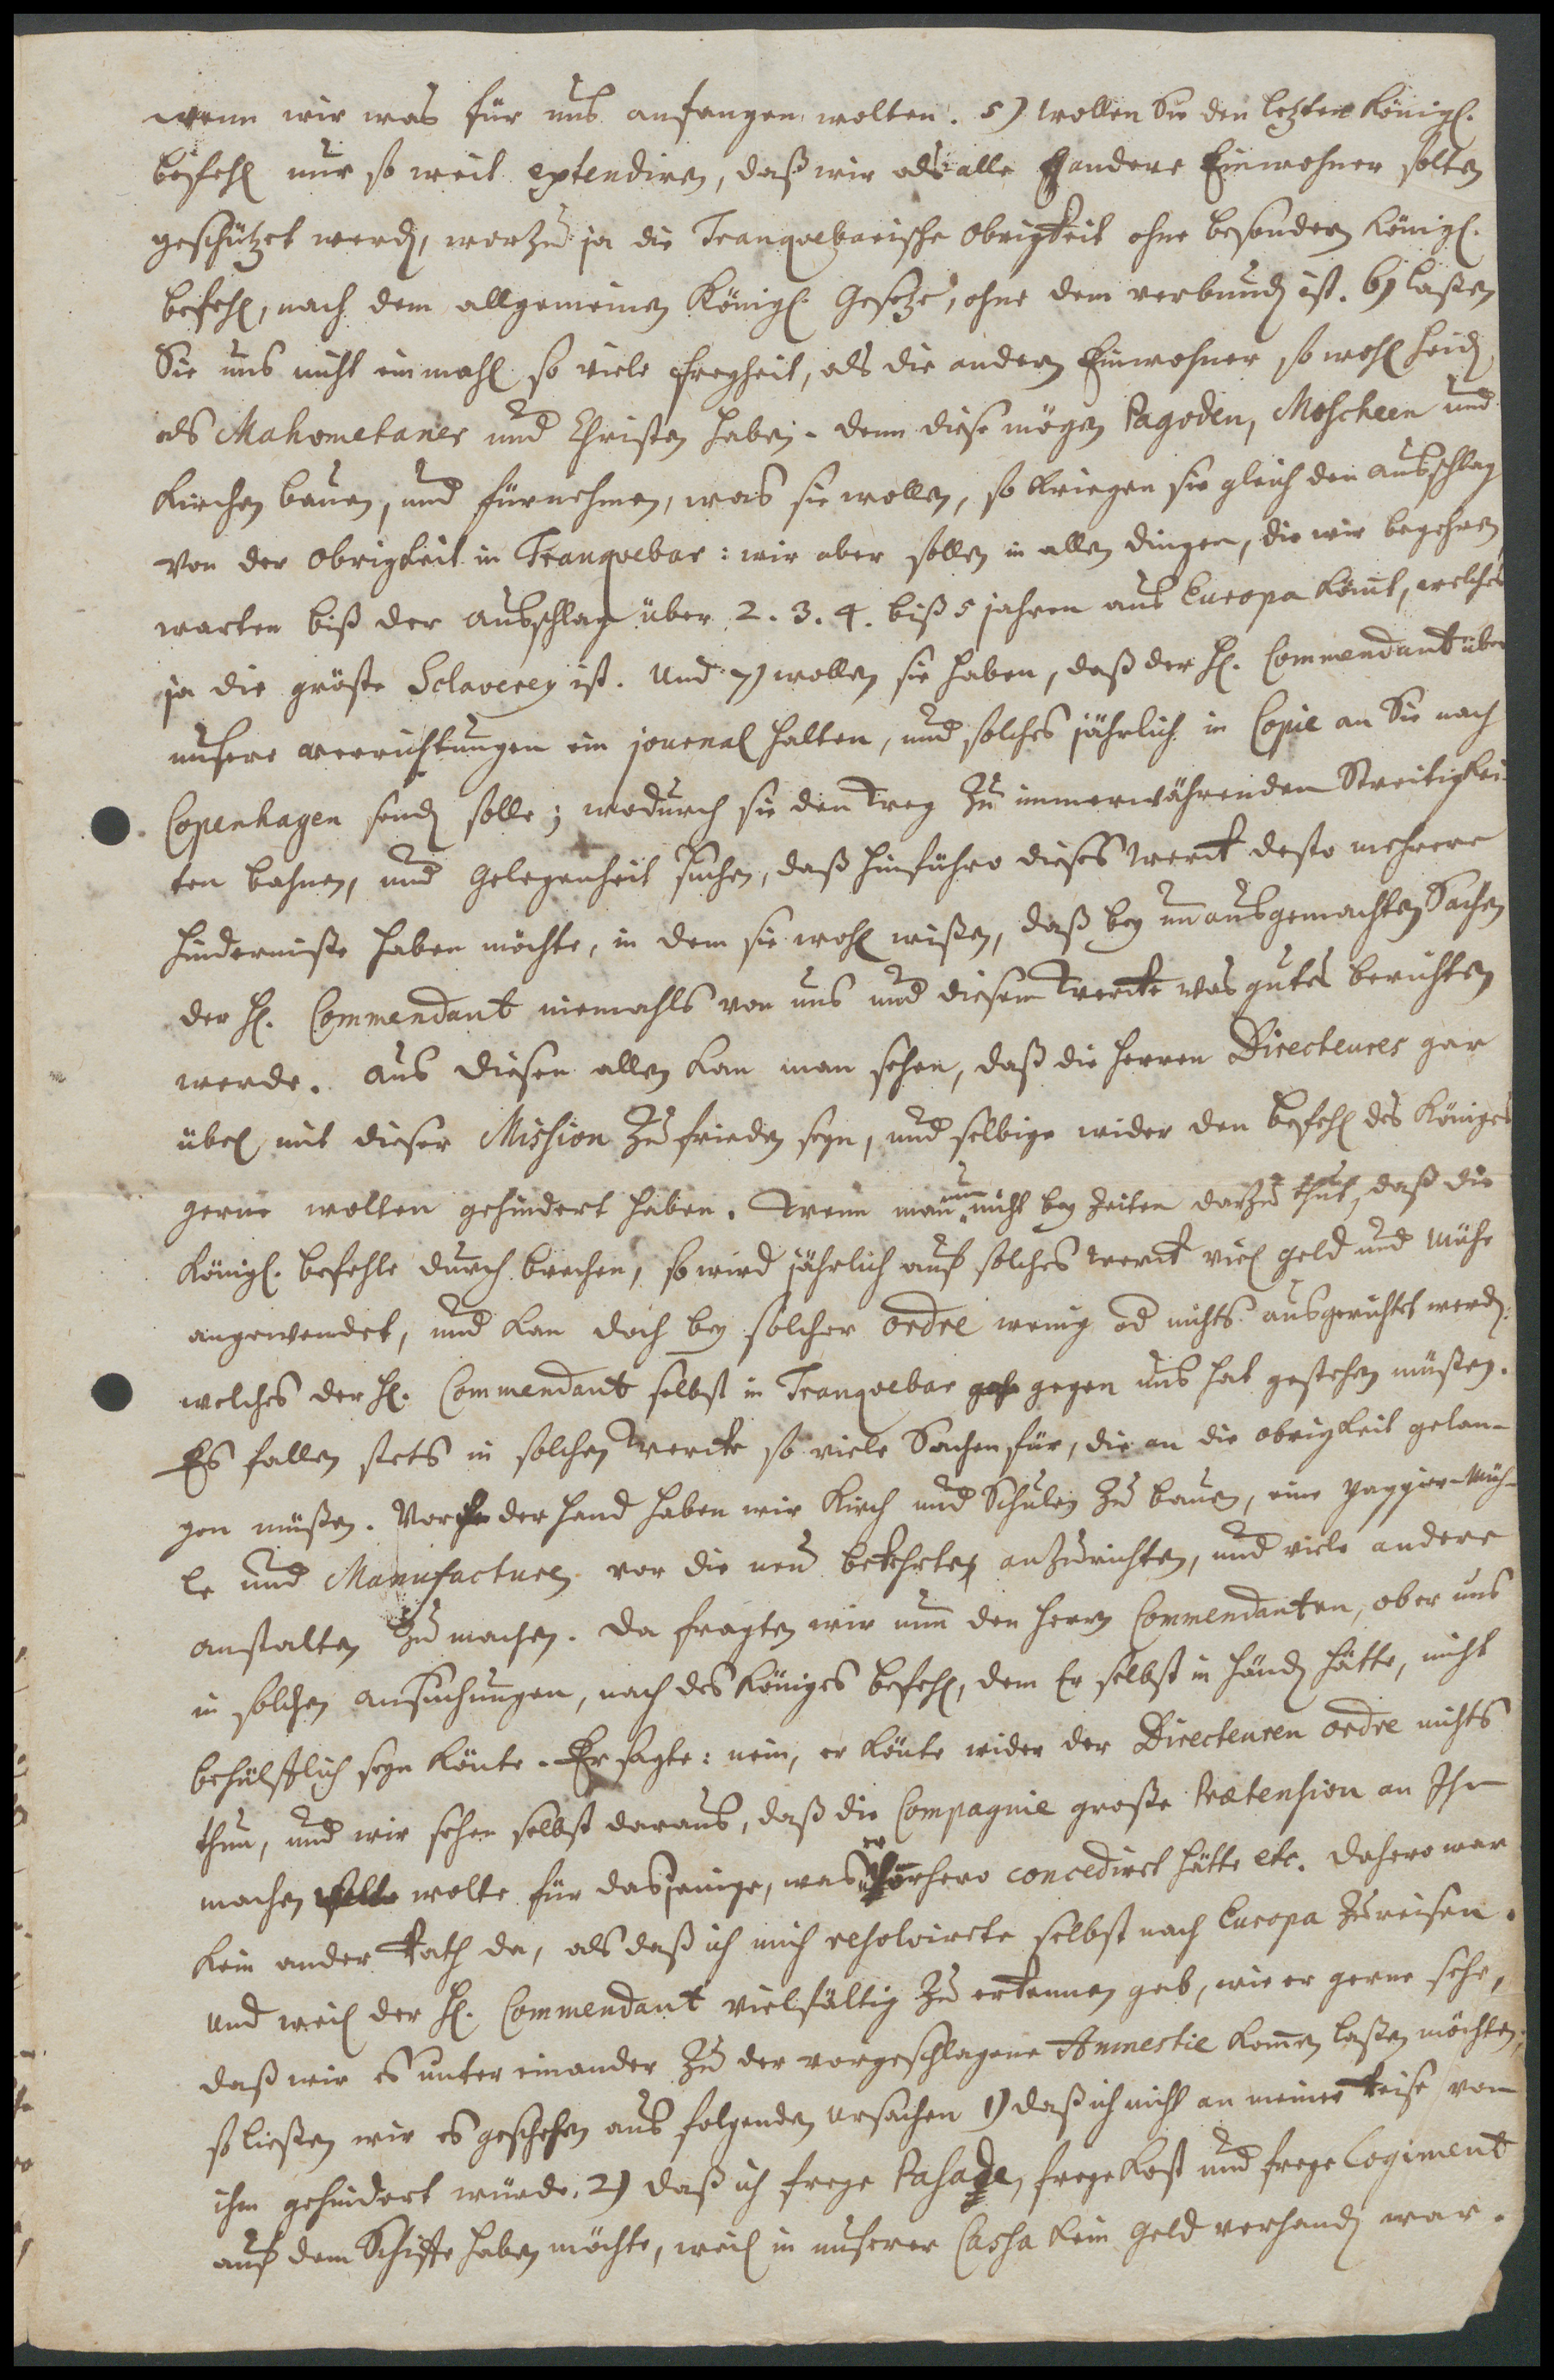 wenn wir was für uns anfangen wolten. 5) wollen Sie den letzten Königl.
befehl nur so weit extendiren, daß wir als alle andere Einwohner solten
geschützet werden, worzu ja die Tranquebarische Obrigkeit ohne besondern Königl.
befehl, nach dem allgemeinen Königl. Gesetze, ohne dem verbunden ist. 6) laßen
Sie uns nicht einmahl so viele freyheit, als die andern Einwohner so wohl Heiden
als Mahometaner und Christen haben. denn diese mögen Pagoden, Moscheen und
Kirchen bauen, und fürnehmen, was sie wollen, so kriegen sie gleich den ausschlag
von der Obrigkeit in Tranquebar: wir aber sollen in allen dingen, die wir begehren
warten biß der ausschlag über 2. 3. 4. biß 5 jahren aus Europa kömt, welches
ja die gröste Sclaverey ist. Und 7) wollen sie haben, daß der H. Commendant über
unsere verrichtungen ein journal halten, und solches jährlich in Copie an Sie nach
Copenhagen senden solle; wodurch sie den Weg zu immerwährenden Streitigkei-
ten bahnen, und Gelegenheit suchen, daß hinführo dieses Werck desto mehrere
hinderniße haben möchte, in dem sie wohl wißen, daß bey unausgemachten Sachen
der H. Commendant niemahls von uns und diesem Wercke was gutes berichten
werde. aus diesen allen kan man sehen, daß die Herren Directeures gar
übel mit dieser Mission zu frieden seyn, und selbige wider den befehl des Königes
gerne wolten gehindert haben. Wenn man nun nicht bey zeiten darzu thut, daß die
Königl. befehle durch brechen, so wird jährlich auf solches Werck viel geld und mühe
angewendet, und kan doch bey solcher ordre wenig od nichts ausgerichtet werden:
welches der H. Commendant selbst in Tranquebar gegen uns hat gestehen müßen.
Es fallen stets in solchen Wercke so viele Sachen für, die an die obrigkeit gelan-
gen müßen. Vor der Hand haben wir Kirch und Schulen zu bauen, eine Pappier-Müh-
le und Manufacturen vor die neu bekehrten anzurichten, und viele andere
anstalten zu machen. Da fragten wir nun den Herrn Commendanten, ob er uns
in solchen ansuchungen, nach des Königes befehl, dem Er selbst in händen hätte, nicht
behülfflich seyn könte. Er sagte: nein, er könte wider der Directeuren ordre nichts
thun, und wir sehen selbst daraus, daß die Compagnie große Prætension an Ihm
machen wolte für dasjenige, was er vorhero concediret hätte etc. dahero war
kein ander Rath da, als daß ich mich resolvirete selbst nach Europa zu reisen.
Und weil der H. Commendant vielfältig zu erkennen gab, wie er gerne sehe,
daß wir es unter einander zu der vorgeschlagene Amnestie komen laßen möchten,
so ließen wir es geschehen aus folgenden ursachen 1) daß ich nicht an meiner Reise von
ihm gehindert würde. 2) daß ich freye Passage, freye Kost und freye Logiment
auf dem Schiffe haben möchte, weil in unserer Cassa kein Geld verhanden war.